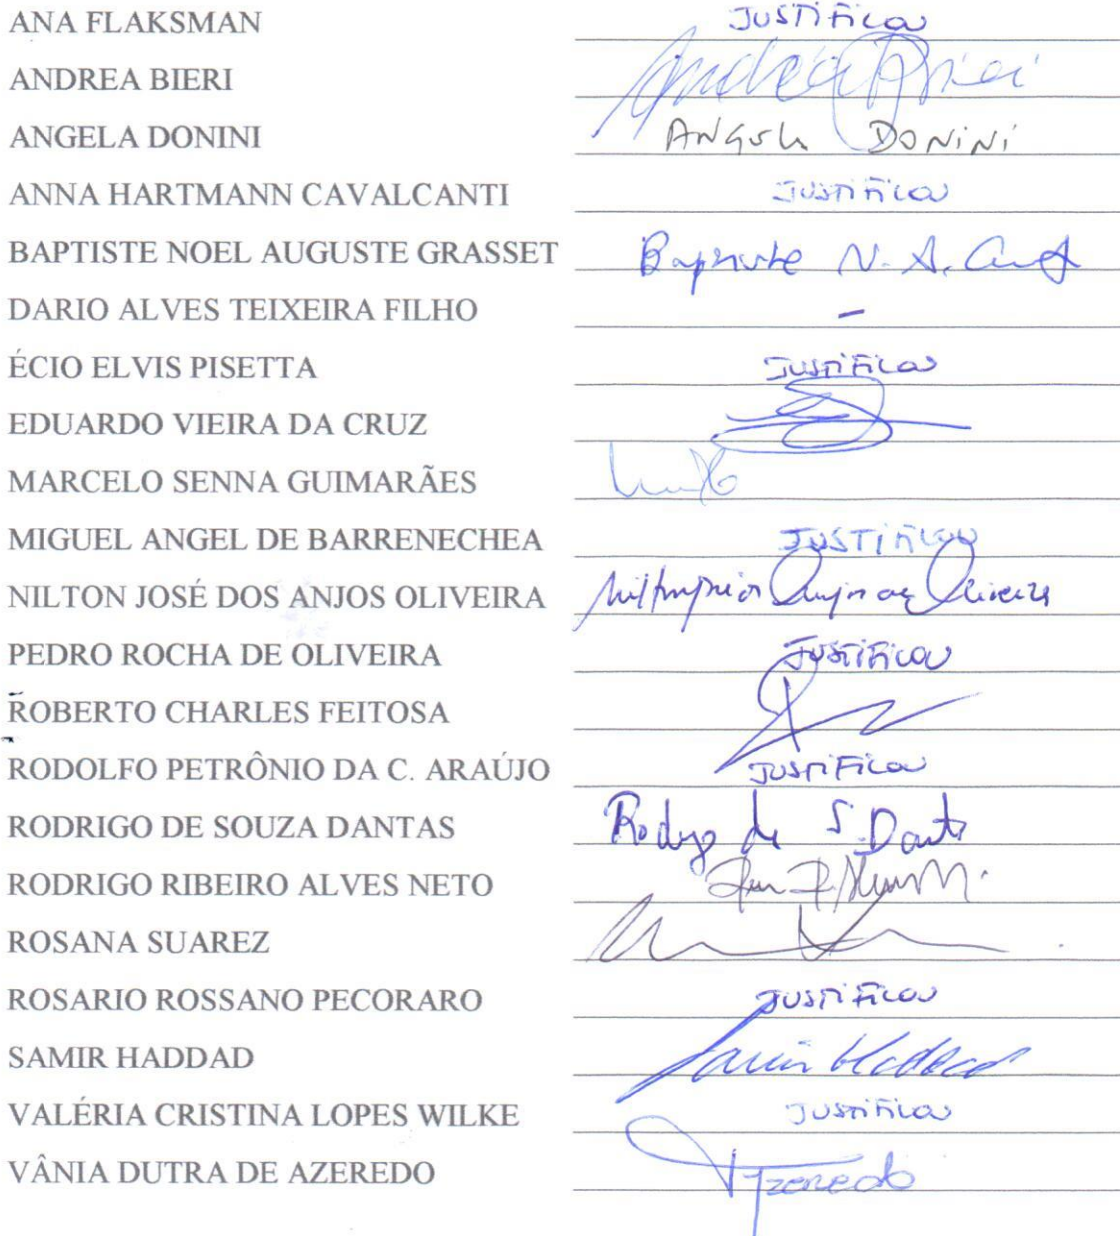 ANA FLAKSMAN JUSTIFICOU
ANDREA BIERI Andrea Bieri
ANGELA DONINI ANGELA DONINI
ANNA HARTMANN CAVALCANTI JUSTIFICOU
BAPTISTE NOEL AUGUSTE GRASSET Baptiste N. A. Grasset
DARIO ALVES TEIXEIRA FILHO -
ÉCIO ELVIS PISETTA JUSTIFICOU
EDUARDO VIEIRA DA CRUZ
MARCELO SENNA GUIMARÃES
MIGUEL ANGEL DE BARRENECHEA JUSTIFICOU
NILTON JOSÉ DOS ANJOS OLIVEIRA Nilton José dos Anjos de Oliveira
PEDRO ROCHA DE OLIVEIRA JUSTIFICOU
ROBERTO CHARLES FEITOSA
RODOLFO PETRÔNIO DA C. ARAÚJO JUSTIFICOU
RODRIGO DE SOUZA DANTAS Rodrigo de S. Dantas
RODRIGO RIBEIRO ALVES NETO
ROSANA SUAREZ
ROSARIO ROSSANO PECORARO JUSTIFICOU
SAMIR HADDAD Samir Haddad
VALÉRIA CRISTINA LOPES WILKE JUSTIFICOU
VÂNIA DUTRA DE AZEREDO VAzeredo